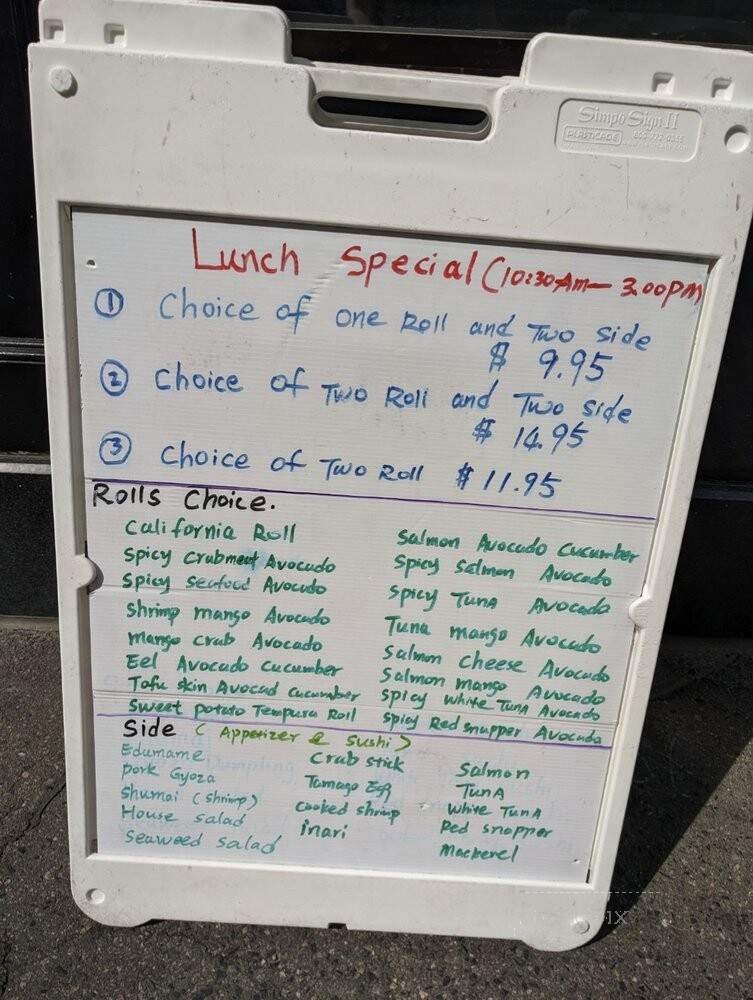 Simpo Sign II
PLASTICADE
Lunch Special (10:30Am— 3.00pm
① Choice of one Roll and Two side
$ 9.95
② Choice of Two Roll and Two side
$ 14.95
③ Choice of Two Roll $ 11.95
Rolls Choice.
California Roll
Spicy Crabmeat Avocado
Spicy seafood Avocado
Shrimp mango Avocado
mango crab Avocado
Eel Avocado cucumber
Tofu skin Avocad cucumber
Sweet potato Tempura Roll
Salmon Avocado Cucumber
Spicy Salmon Avocado
Spicy Tuna Avocado
Tuna mango Avocado
Salmon cheese Avocado
Salmon mango Avocado
Spicy white Tuna Avocado
Spicy Red snapper Avocado
Side ( Appetizer & Sushi )
Edumame
pork Gyoza
Shumai (shrimp)
House salad
Seaweed salad
Crab stick
Tamago Egg
cooked shrimp
inari
Salmon
TunA
white TunA
Red snapper
mackerel